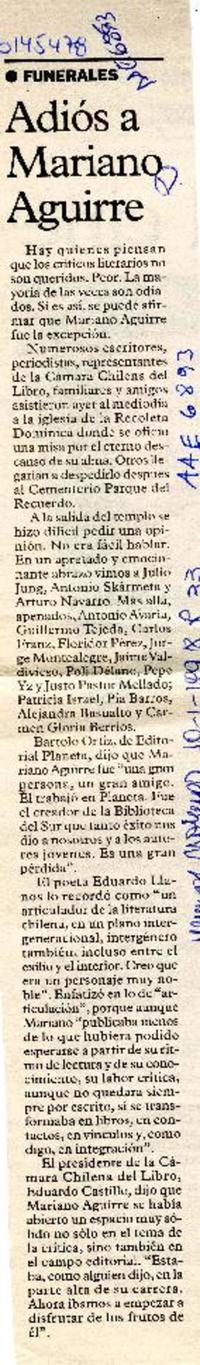 0145478
● FUNERALES
Adiós a
Mariano
Aguirre
Hay quienes piensan
que los críticos literarios no
son queridos. Peor. La ma-
yoría de las veces son odia-
dos. Si es así, se puede afir-
mar que Mariano Aguirre
fue la excepción.
Numerosos escritores,
periodistas, representantes
de la Cámara Chilena del
Libro, familiares y amigos
asistieron ayer al mediodía
a la iglesia de la Recoleta
Dominica donde se ofició
una misa por el eterno des-
canso de su alma. Otros lle-
garían a despedirlo después
al Cementerio Parque del
Recuerdo.
A la salida del templo se
hizo difícil pedir una opi-
nión. No era fácil hablar.
En un apretado y emocio-
nante abrazo vimos a Julio
Jung, Antonio Skármeta y
Arturo Navarro. Más allá,
apenados, Antonio Avaria,
Guillermo Tejeda, Carlos
Franz, Floridor Pérez, Jor-
ge Montealegre, Jaime Val-
divieso, Poli Délano, Pepe
Yz y Justo Pastor Mellado;
Patricia Israel, Pía Barros,
Alejandra Basualto y Car-
men Gloria Berríos.
Bartolo Ortiz, de Edito-
rial Planeta, dijo que Ma-
riano Aguirre fue "una gran
persona, un gran amigo.
El trabajó en Planeta. Fue
el creador de la Biblioteca
del Sur que tanto éxito nos
dio a nosotros y a los auto-
res jóvenes. Es una gran
pérdida".
El poeta Eduardo Lla-
nos lo recordó como "un
articulador de la literatura
chilena, en un plano inter-
generacional, intergénero
también, incluso entre el
exilio y el interior. Creo que
era un personaje muy no-
ble". Enfatizó en lo de "ar-
ticulación", porque aunque
Mariano "publicaba menos
de lo que hubiera podido
esperarse a partir de su rit-
mo de lectura y de su cono-
cimiento, su labor crítica,
aunque no quedara siem-
pre por escrito, sí se trans-
formaba en libros, en con-
tactos, en vínculos y, como
digo, en integración".
El presidente de la Cá-
mara Chilena del Libro,
Eduardo Castillo, dijo que
Mariano Aguirre se había
abierto un espacio muy só-
lido no sólo en el tema de
la crítica, sino también en
el campo editorial. "Esta-
ba, como alguien dijo, en la
parte alta de su carrera.
Ahora íbamos a empezar a
disfrutar de los frutos de
él".
AAE 6893
10-1-1998 P 33